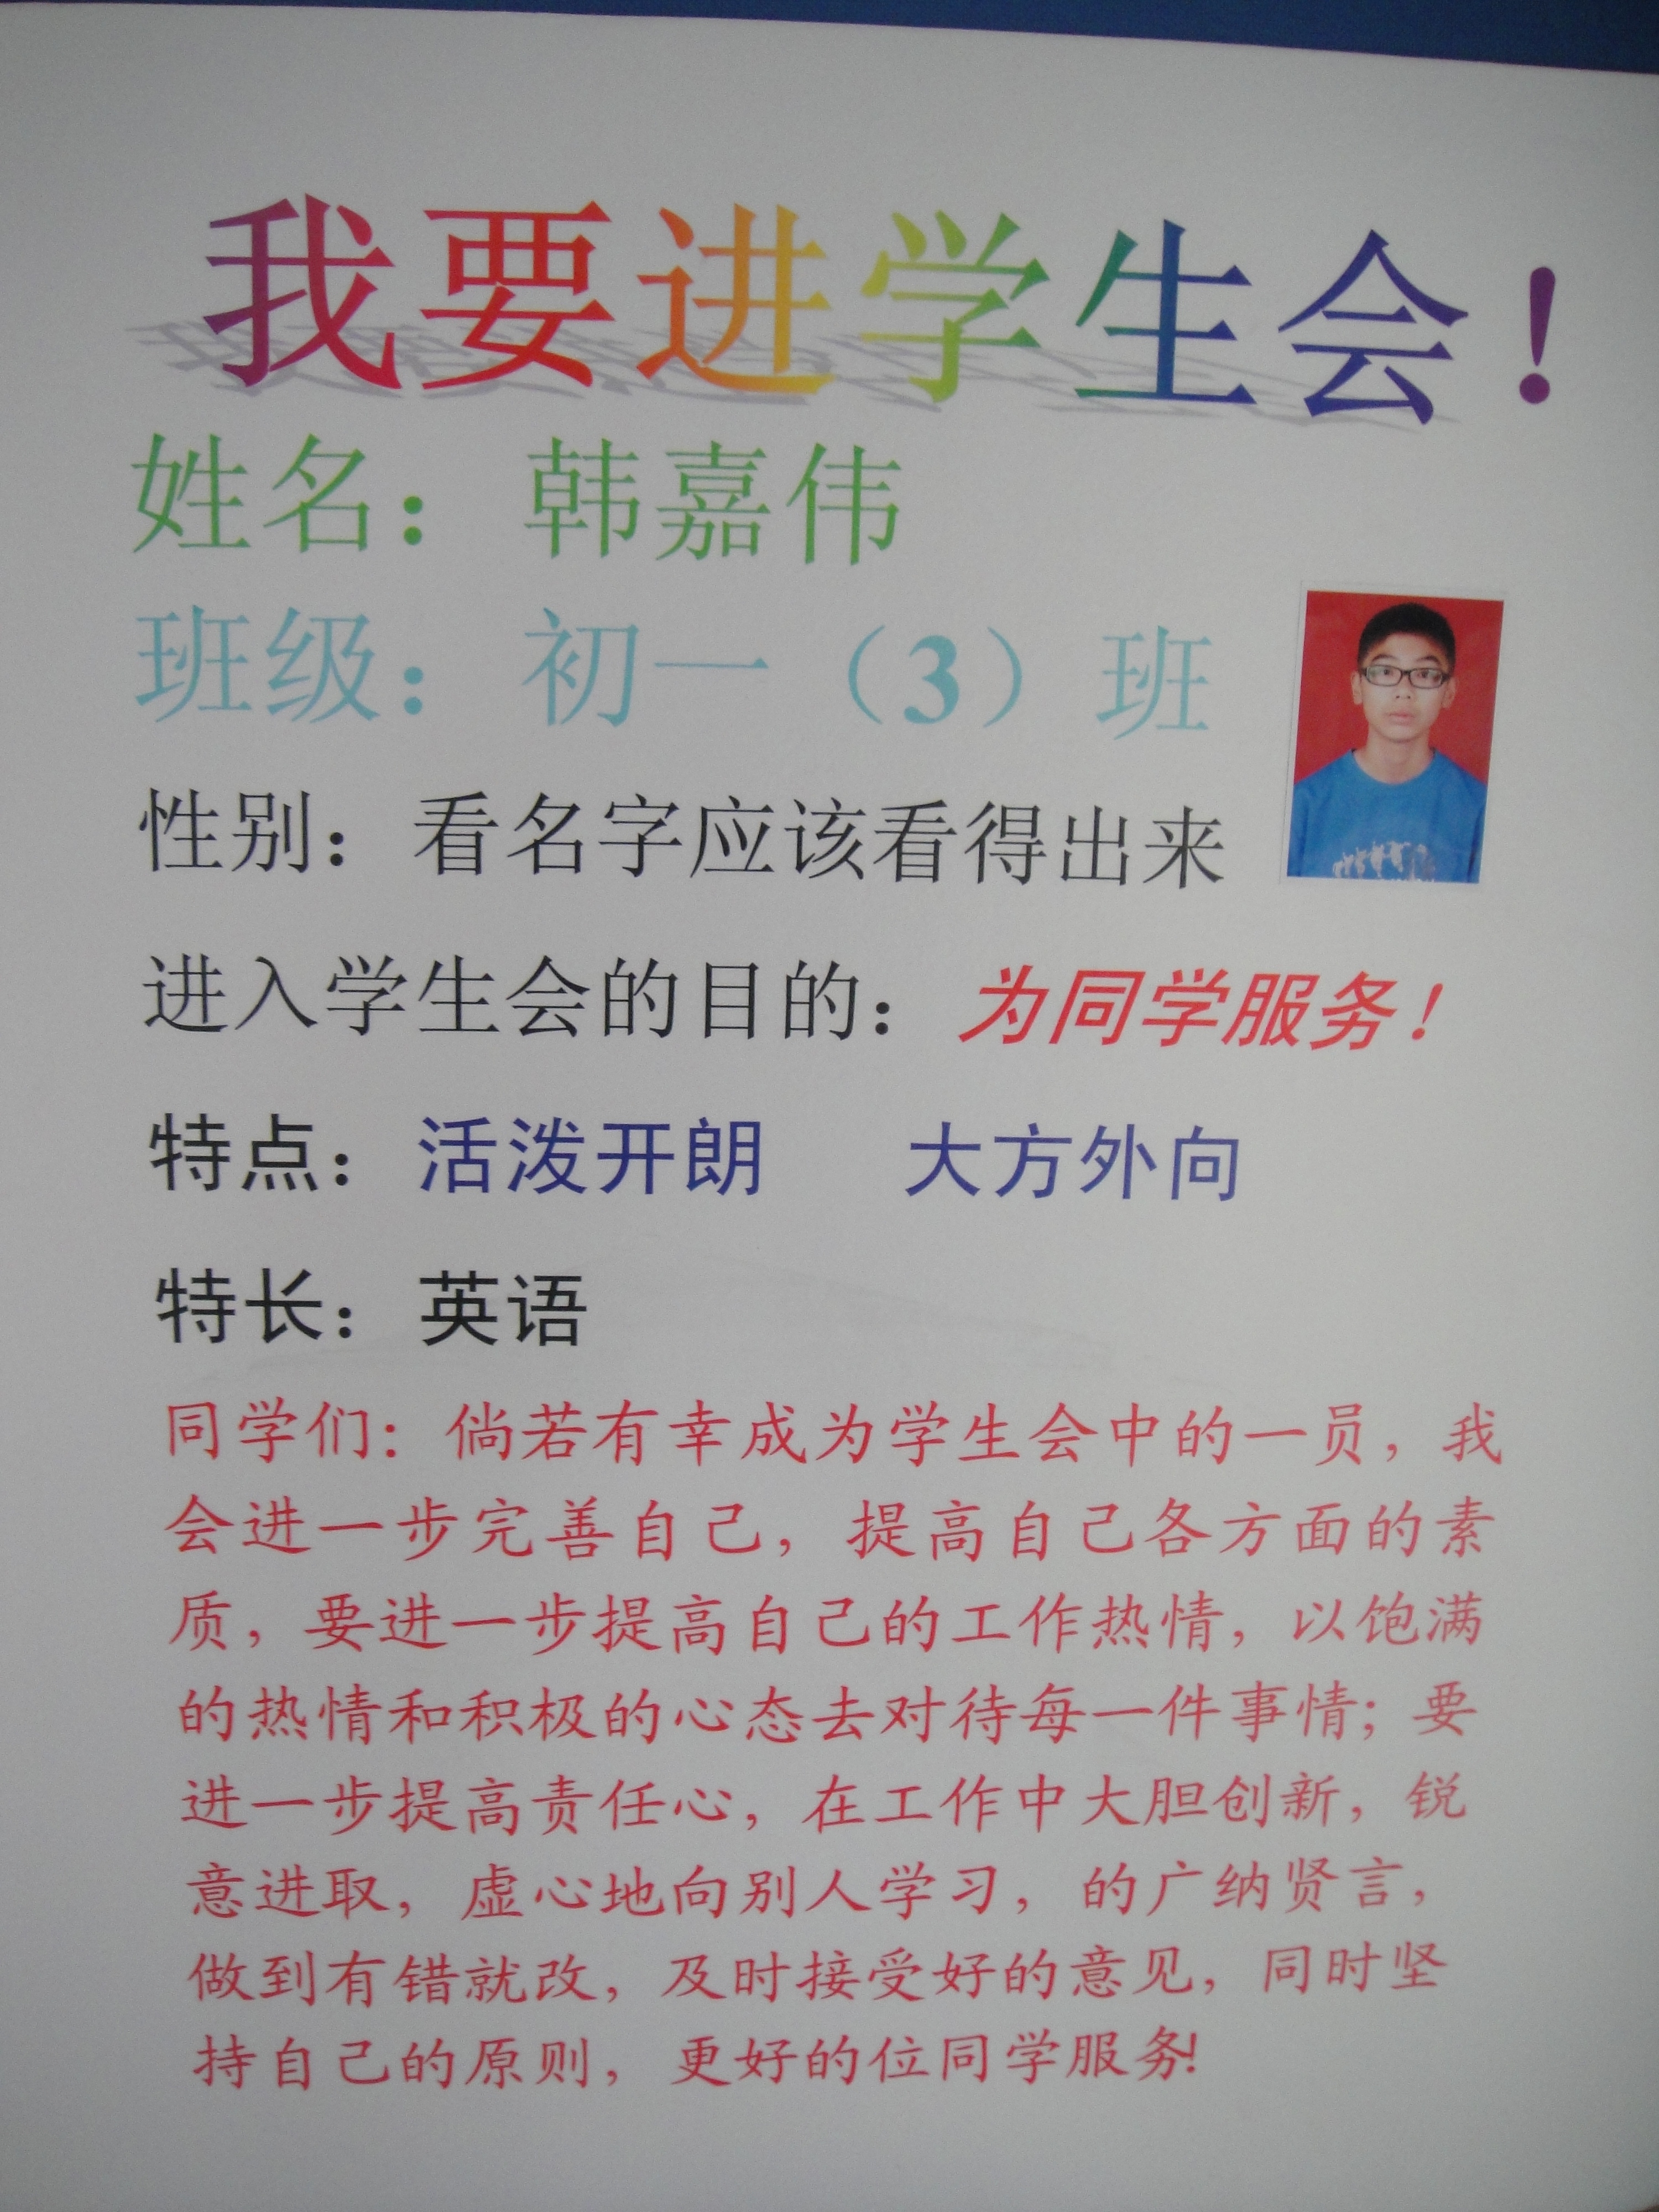 我要进学生会！
姓名：韩嘉伟
班级：初一（3）班
性别：看名字应该看得出来
进入学生会的目的：为同学服务！
特点：活泼开朗 大方外向
特长：英语
同学们：倘若有幸成为学生会中的一员，我
会进一步完善自己，提高自己各方面的素
质，要进一步提高自己的工作热情，以饱满
的热情和积极的心态去对待每一件事情；要
进一步提高责任心，在工作中大胆创新，锐
意进取，虚心地向别人学习，的广纳贤言，
做到有错就改，及时接受好的意见，同时坚
持自己的原则，更好的位同学服务!